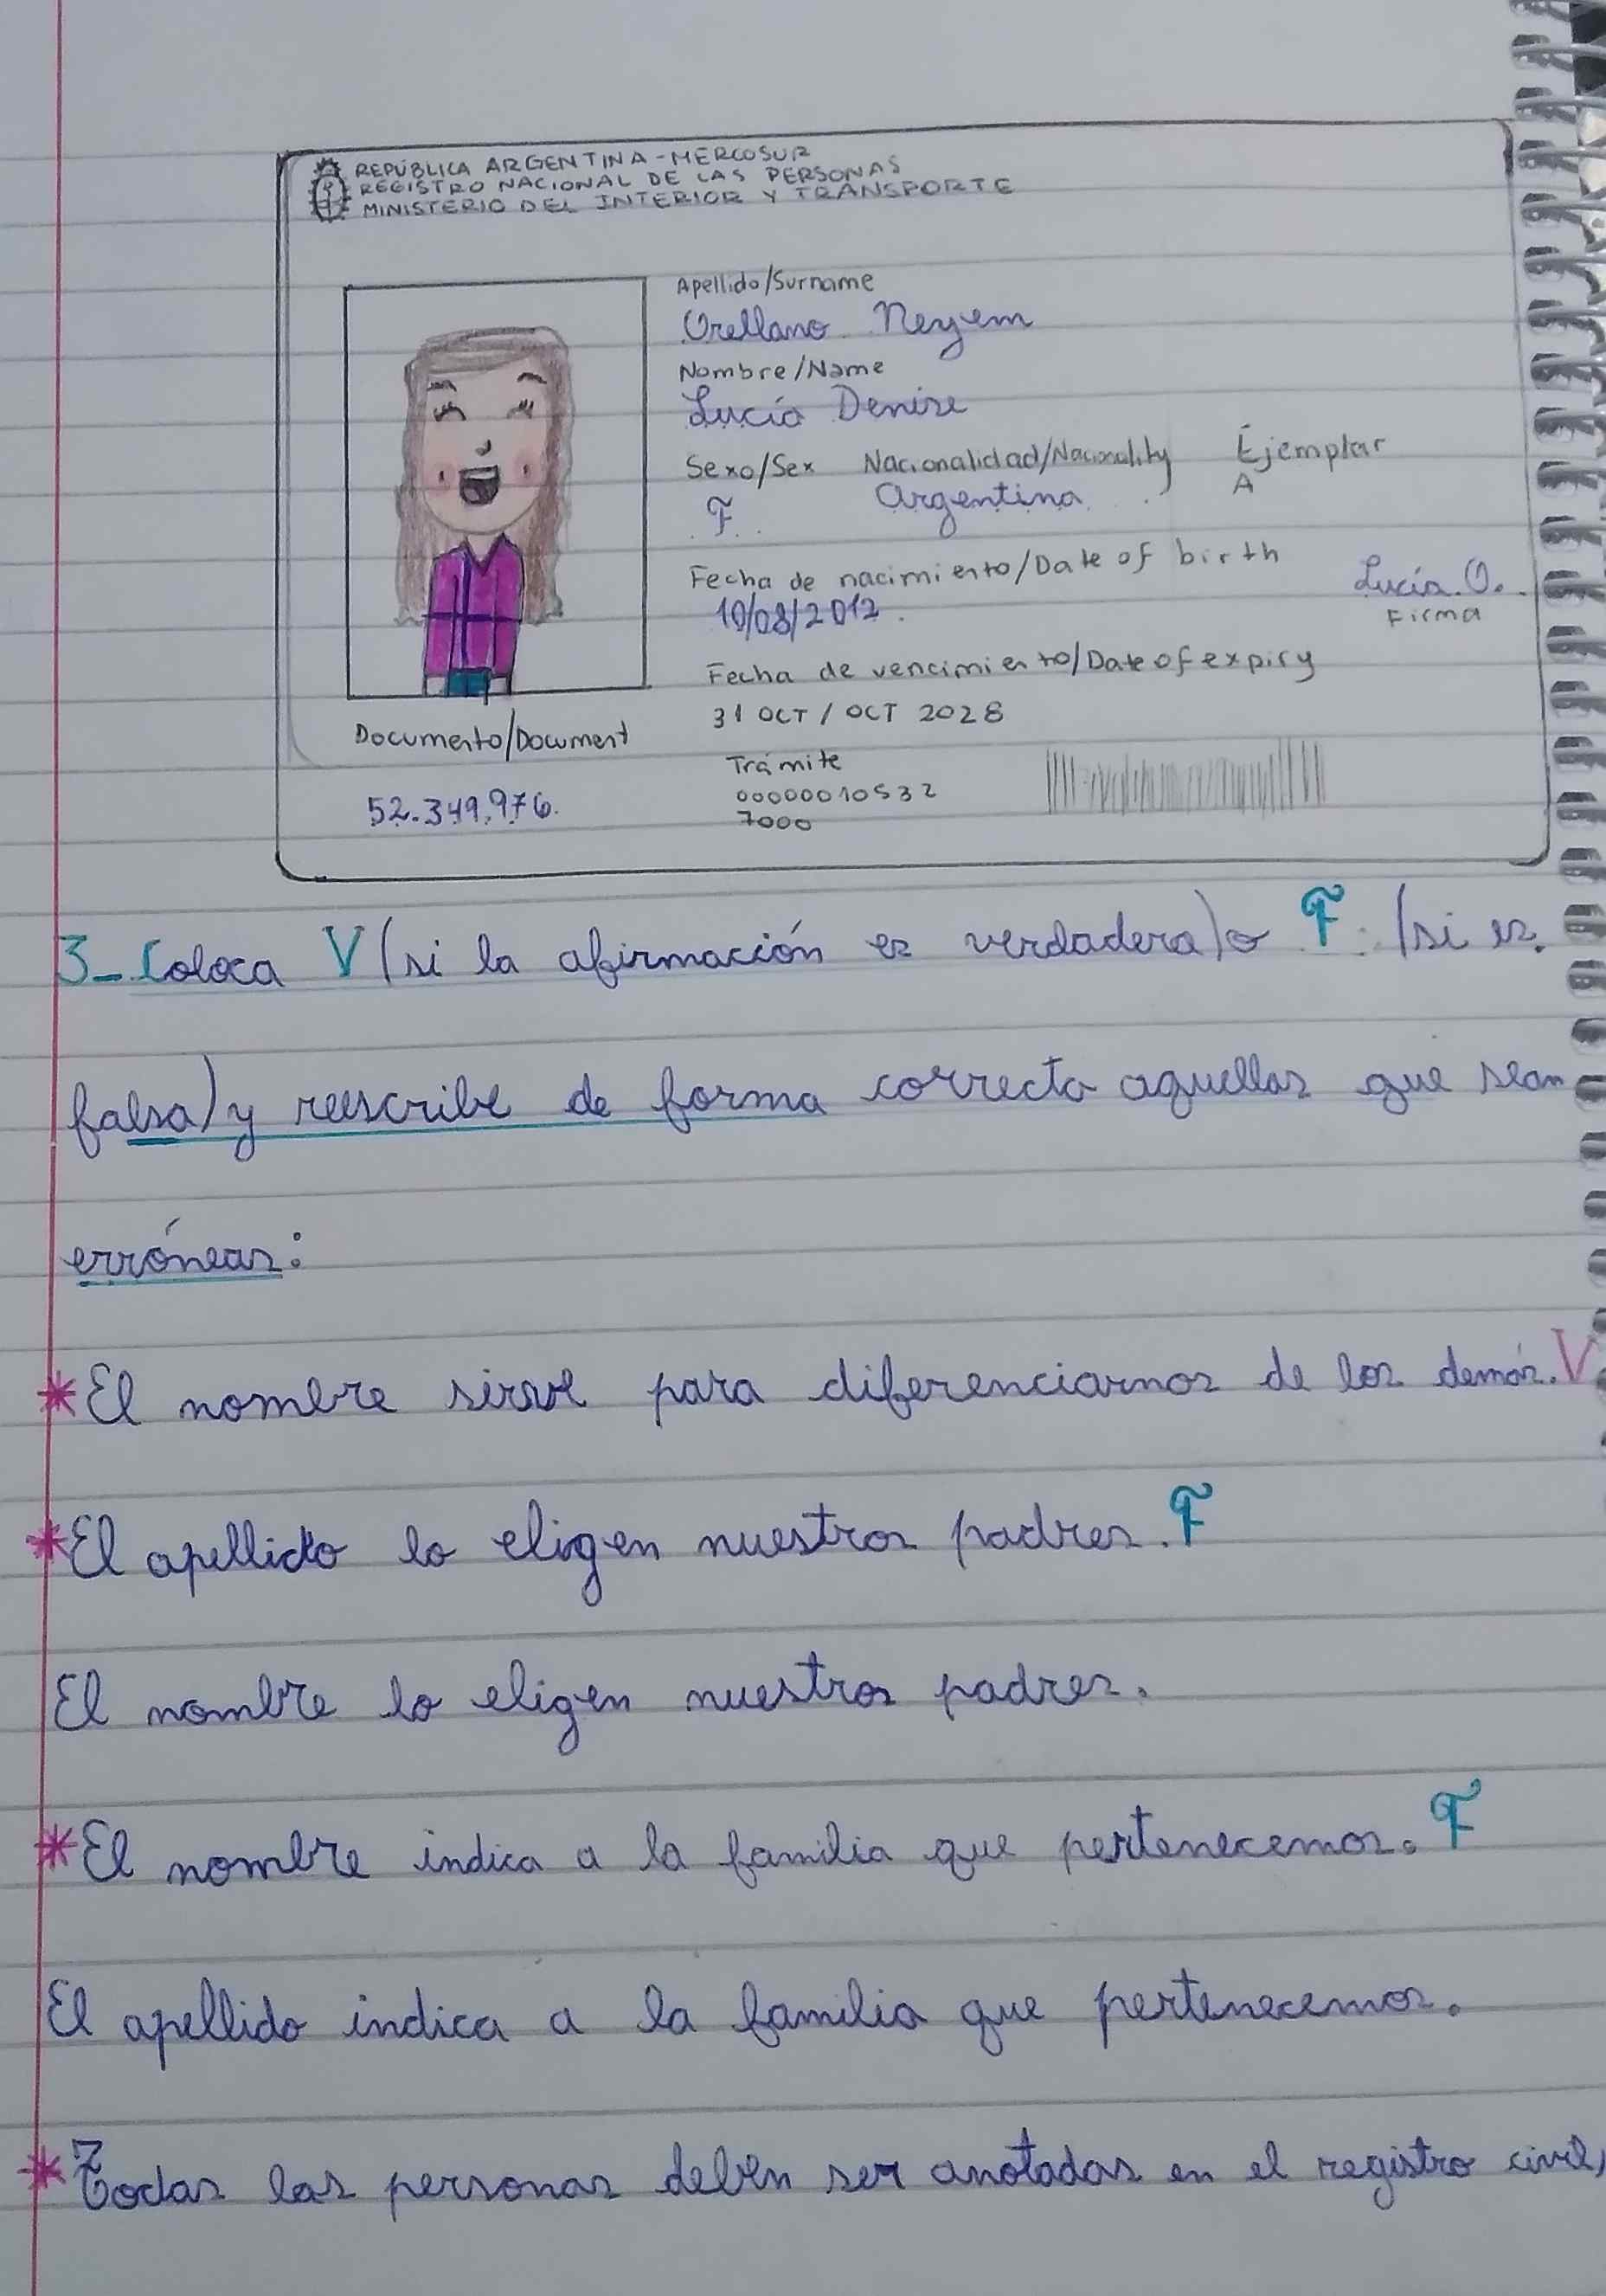 REPÚBLICA ARGENTINA - MERCOSUR
REGISTRO NACIONAL DE LAS PERSONAS
MINISTERIO DEL INTERIOR Y TRANSPORTE
Apellido/Surname
Orellano Neyem
Nombre/Name
Lucía Denise
Sexo/Sex Nacionalidad/Nacionality Éjemplar
F. Argentina A
Fecha de nacimiento/Date of birth
10/08/2012.
Lucía. O.
Firma
Fecha de vencimiento/Date of expiry
31 OCT / OCT 2028
Documento/Document
52.349.976.
Trámite
00000010532
7000
3_ Coloca V (si la afirmación es verdadera) o F. (si es.
falsa) y reescribe de forma correcta aquellas que sean
erróneas:
* El nombre sirve para diferenciarnos de los demás. V
* El apellido lo eligen nuestros padres. F
El nombre lo eligen nuestros padres.
* El nombre indica a la familia que pertenecemos. F
El apellido indica a la familia que pertenecemos.
* Todas las personas deben ser anotadas en el registro civil,